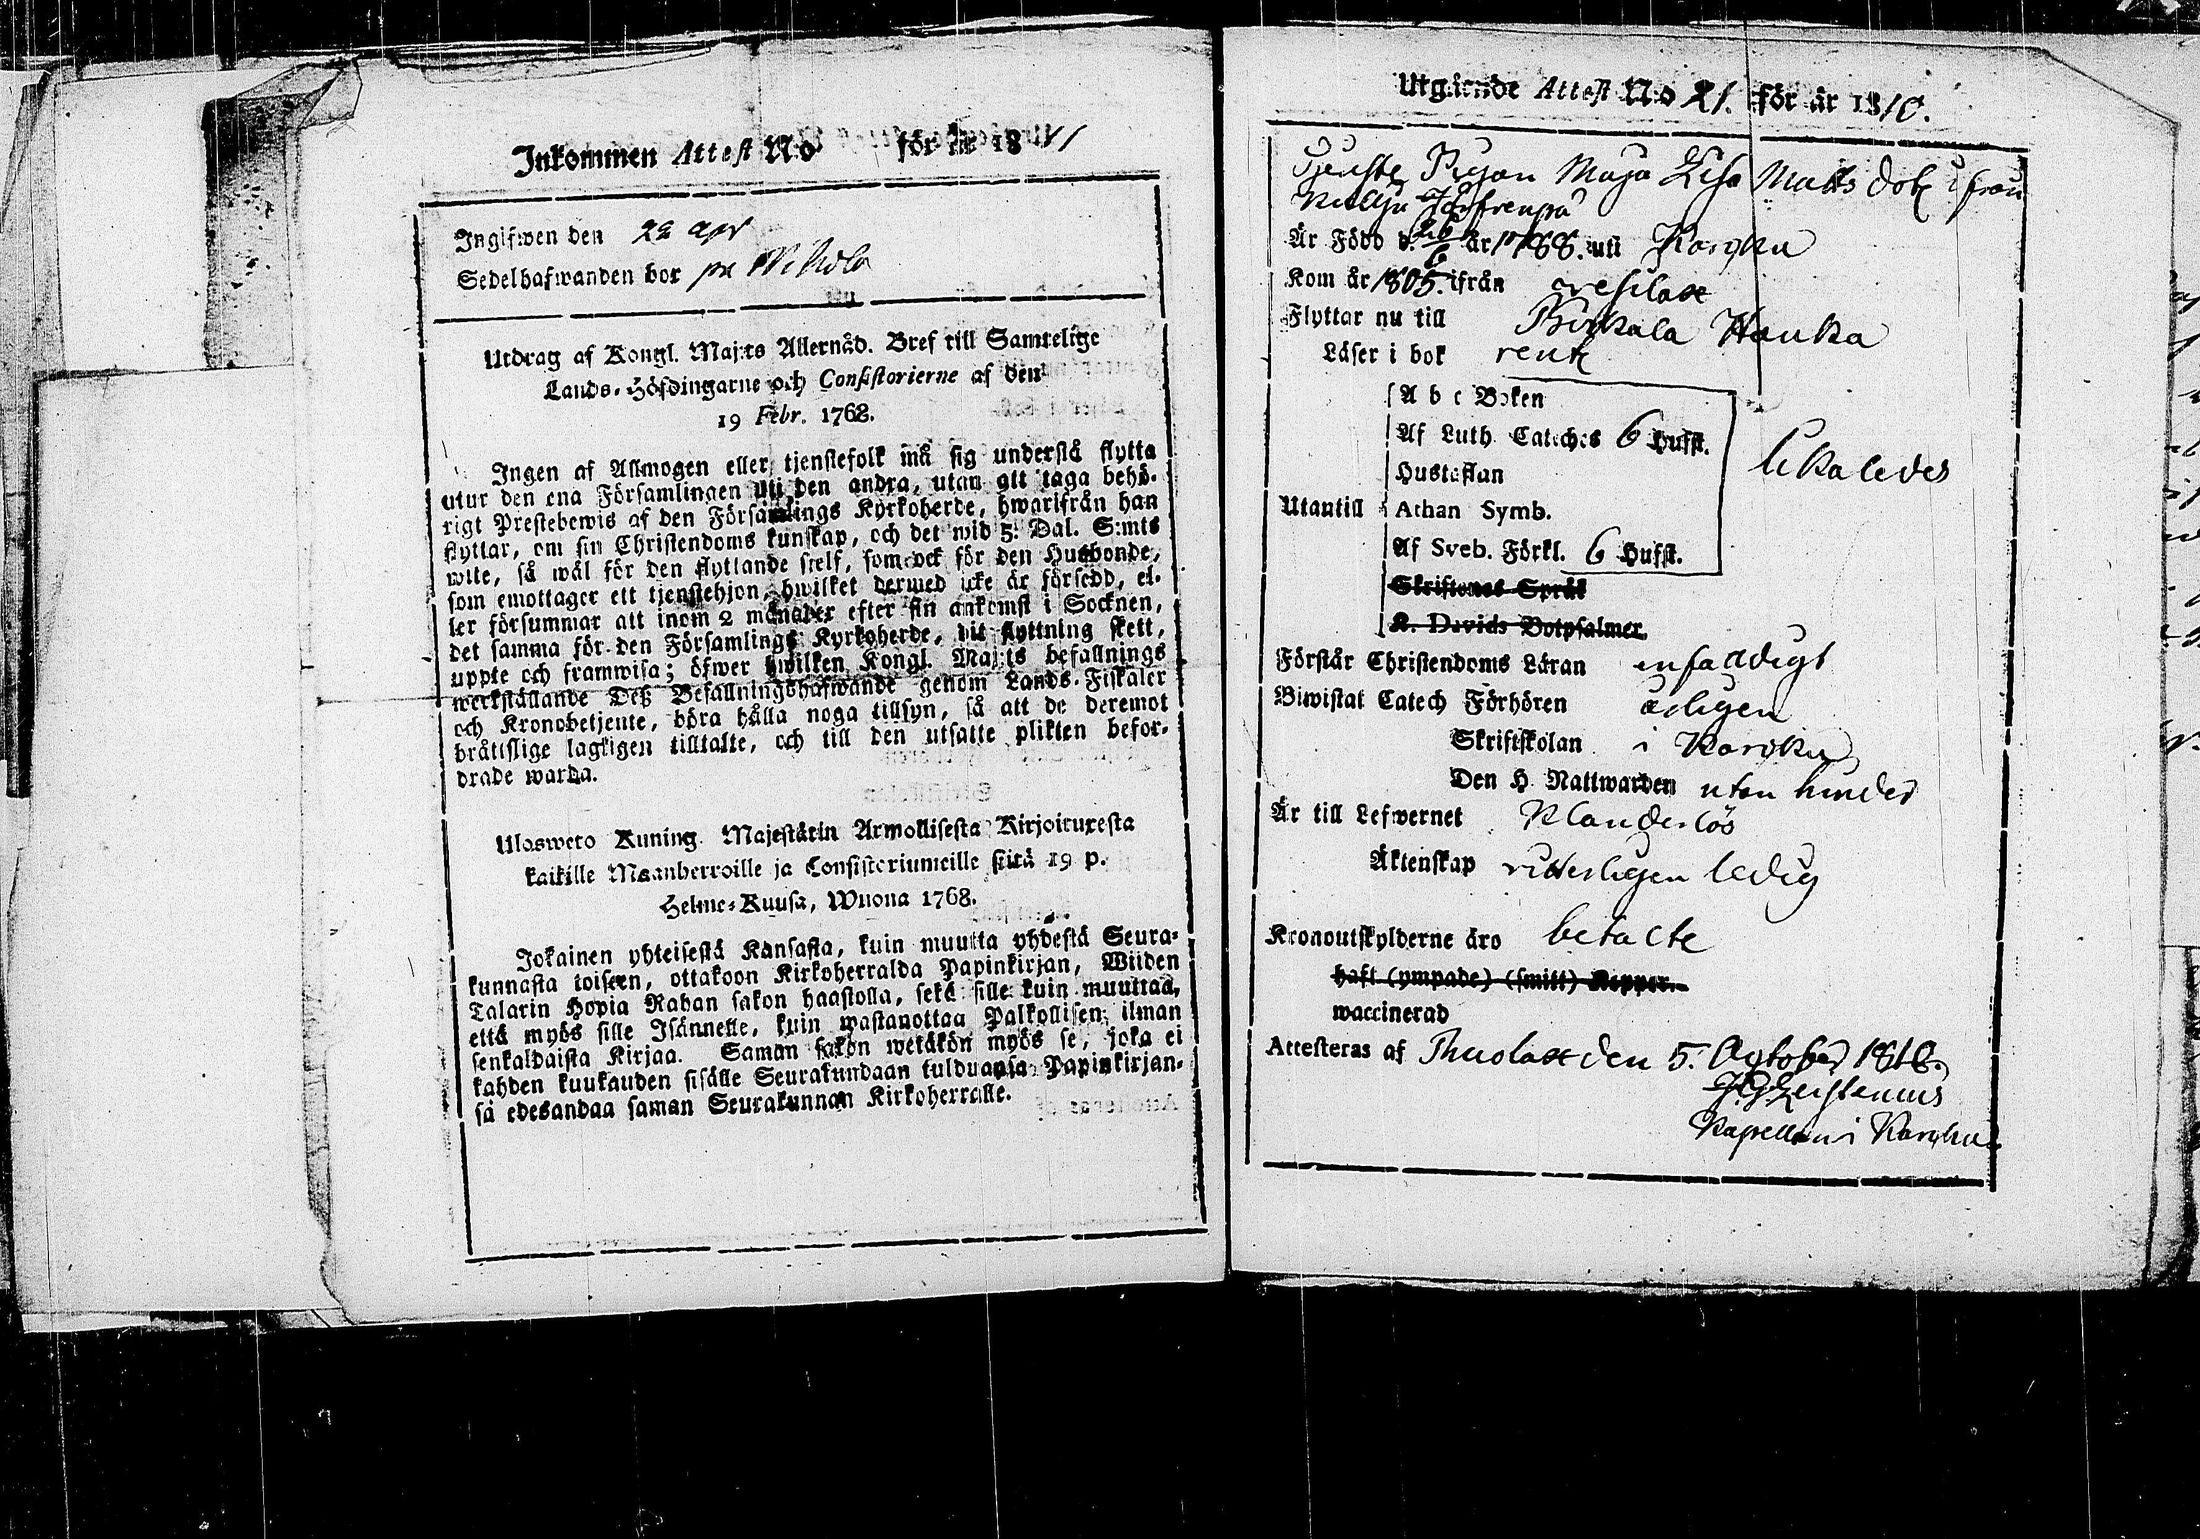 Inkommen Attest No för år 1811
Ingifwen den 22 apr
Sedelhafwanden bor på Mikola
Utdrag af Kongl. Maj:ts Allernåd. Bref till Samtelige
Lands-Höfdingarne och Consistorierne af den
19 Febr. 1768.
Ingen af Allmogen eller tjenstefolk må sig understå flytta
utur den ena Församlingen uti den andra, utan att taga behö-
rigt Prestebewis af den Församlings Kyrkoherde, hwarifrån han
flyttar, om sin Christendoms kunskap, och det wid 5. Dal. S:mts
wite, så wäl för den flyttande sielf, som ock för den Husbonde,
som emottager ett tjenstehjon, hwilket dermed icke är försedd, el-
ler försummar att inom 2 månader efter sin ankomst i Socknen,
det samma för den Församlings Kyrkoherde, dit flyttning skett,
uppte och framwisa; öfwer hwilken Kongl. Maj:ts befallnings
werkställande Deß Befallningshafwande genom Lands-Fiskaler
och Kronobetjente, böra hålla noga tillsyn, så att de deremot
bråttslige lagligen tilltalte, och till den utsatte plikten befor-
drade warda.
Ulosweto Kuning. Majestätin Armollisesta Kirjoituxesta
kaikille Maanherroille ja Consistoriumeille siitä 19 p.
Helme-Kuusa, Wuona 1768.
Jokainen yhteisestä Kansasta, kuin muutta yhdestä Seura-
kunnasta toiseen, ottakoon Kirkoherralda Papinkirjan, Wiiden
Talarin Hopia Rahan sakon haastolla, sekä sille kuin muuttaa,
että myös sille Isännelle, kuin wastanottaa Palkollisen ilman
senkaldaista Kirjaa. Saman sakon wetäkön myös se, joka ei
kahden kuukauden sisälle Seurakundaan tulduansa Papinkirjan-
sa edesandaa saman Seurakunnan Kirkoherralle.
Utgående Attest No 21. för år 1810.
Tjenste Pigan Maja Lisa Matts dotr ifrån
Är Född d. 26/6 år 1788. uti Karcku
Kom år 1805. ifrån
Flyttar nu till Birkala Hauka
Läser i bok rent
A b c Boken
Af Luth. Catechs 6 Hufst.
Hustaflan
likaledes
Utantill Athan Symb.
Af Sveb. Förkl. 6 Hufst.
Skriftenes Språk
K. Davids Botpsalmer.
Förstår Christendoms Läran enfaldigt
Biwistat Catech Förhören årligen
Skriftskolan i Karcku
Den H. Nattwarden utan hinder
Är till Lefwernet Klanderlös
Äktenskap witterligen ledig
Kronoutskylderne äro betalte
haft (ympade) (smitt) Kopper.
waccinerad
Attesteras af den 5. October 1810.
Kapellan i Karcku